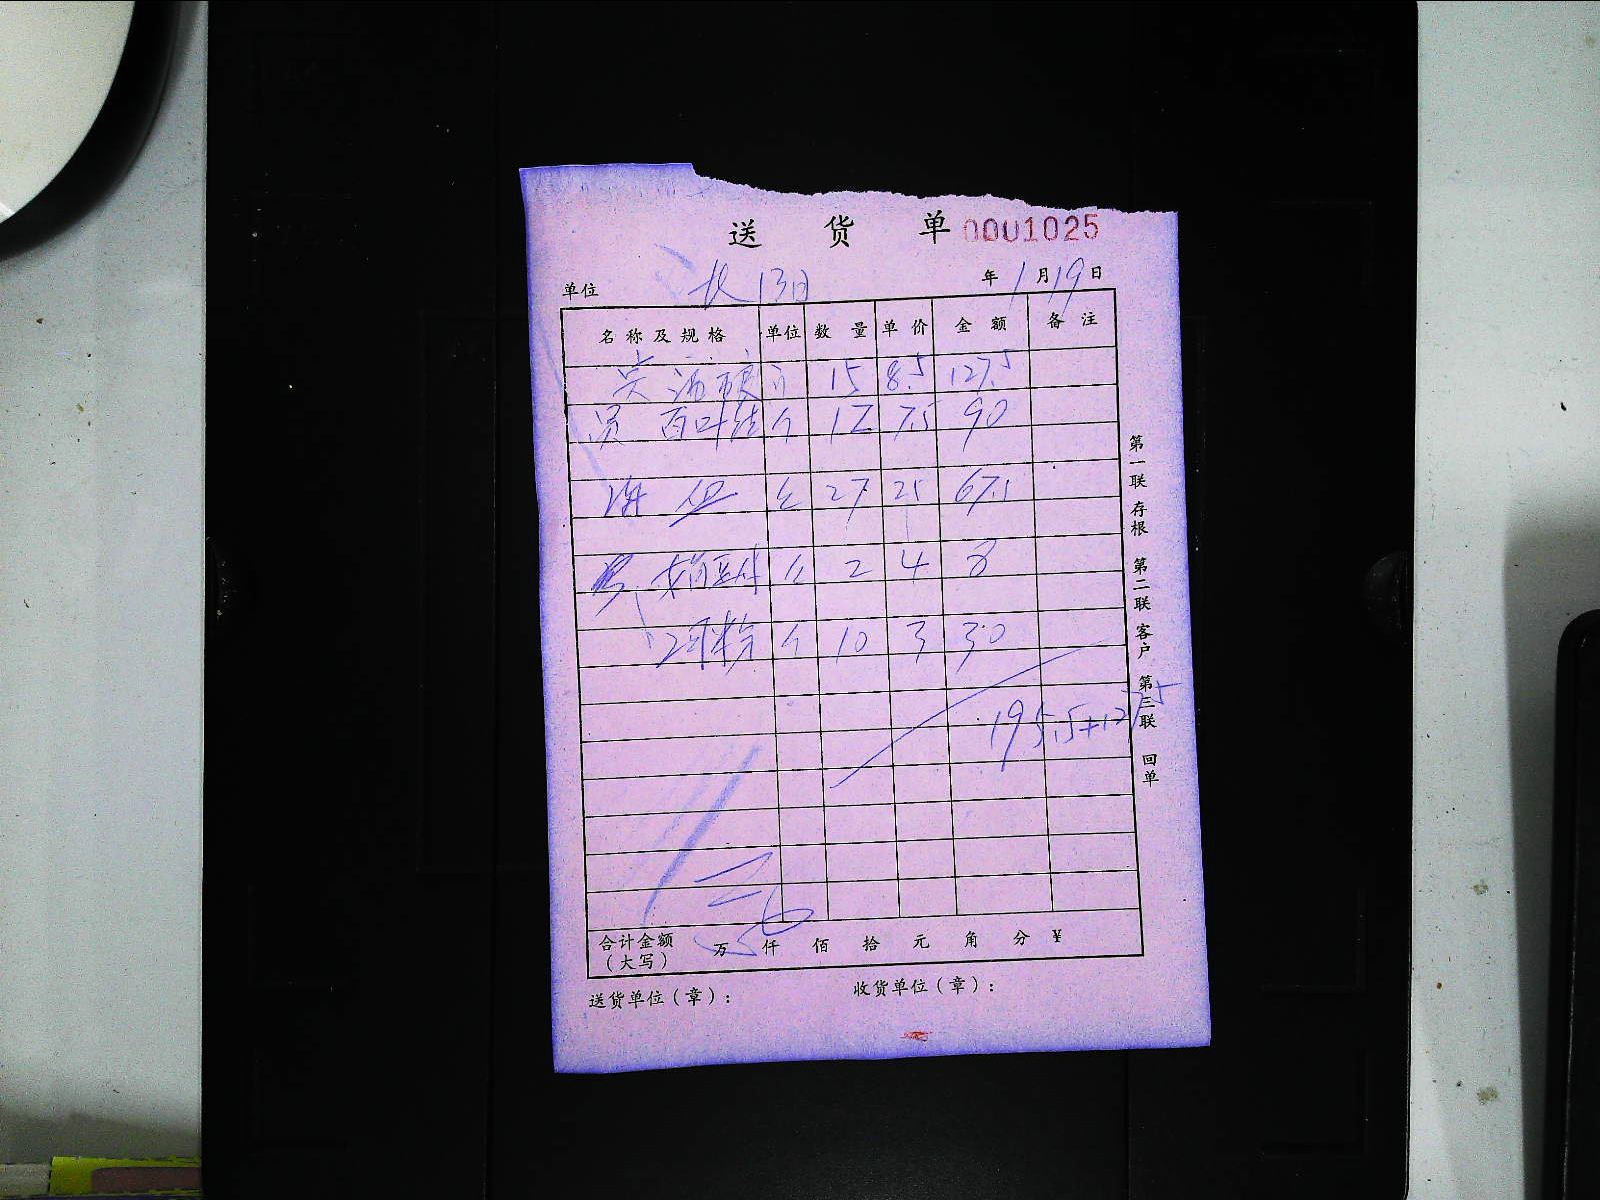 送 货 单 0001025
单位 年 1 月 19 日
名称及规格 单位 数量 单价 金额 备注
15 8.5 127.5
百叶结 个 12 7.5 90
27 25 67.5
2 4 8
河粉 个 10 3 30
195.5+127.5
合计金额（大写） 万 仟 佰 拾 元 角 分 ¥
送货单位（章）： 收货单位（章）：
第一联 存根 第二联 客户 第三联 回单